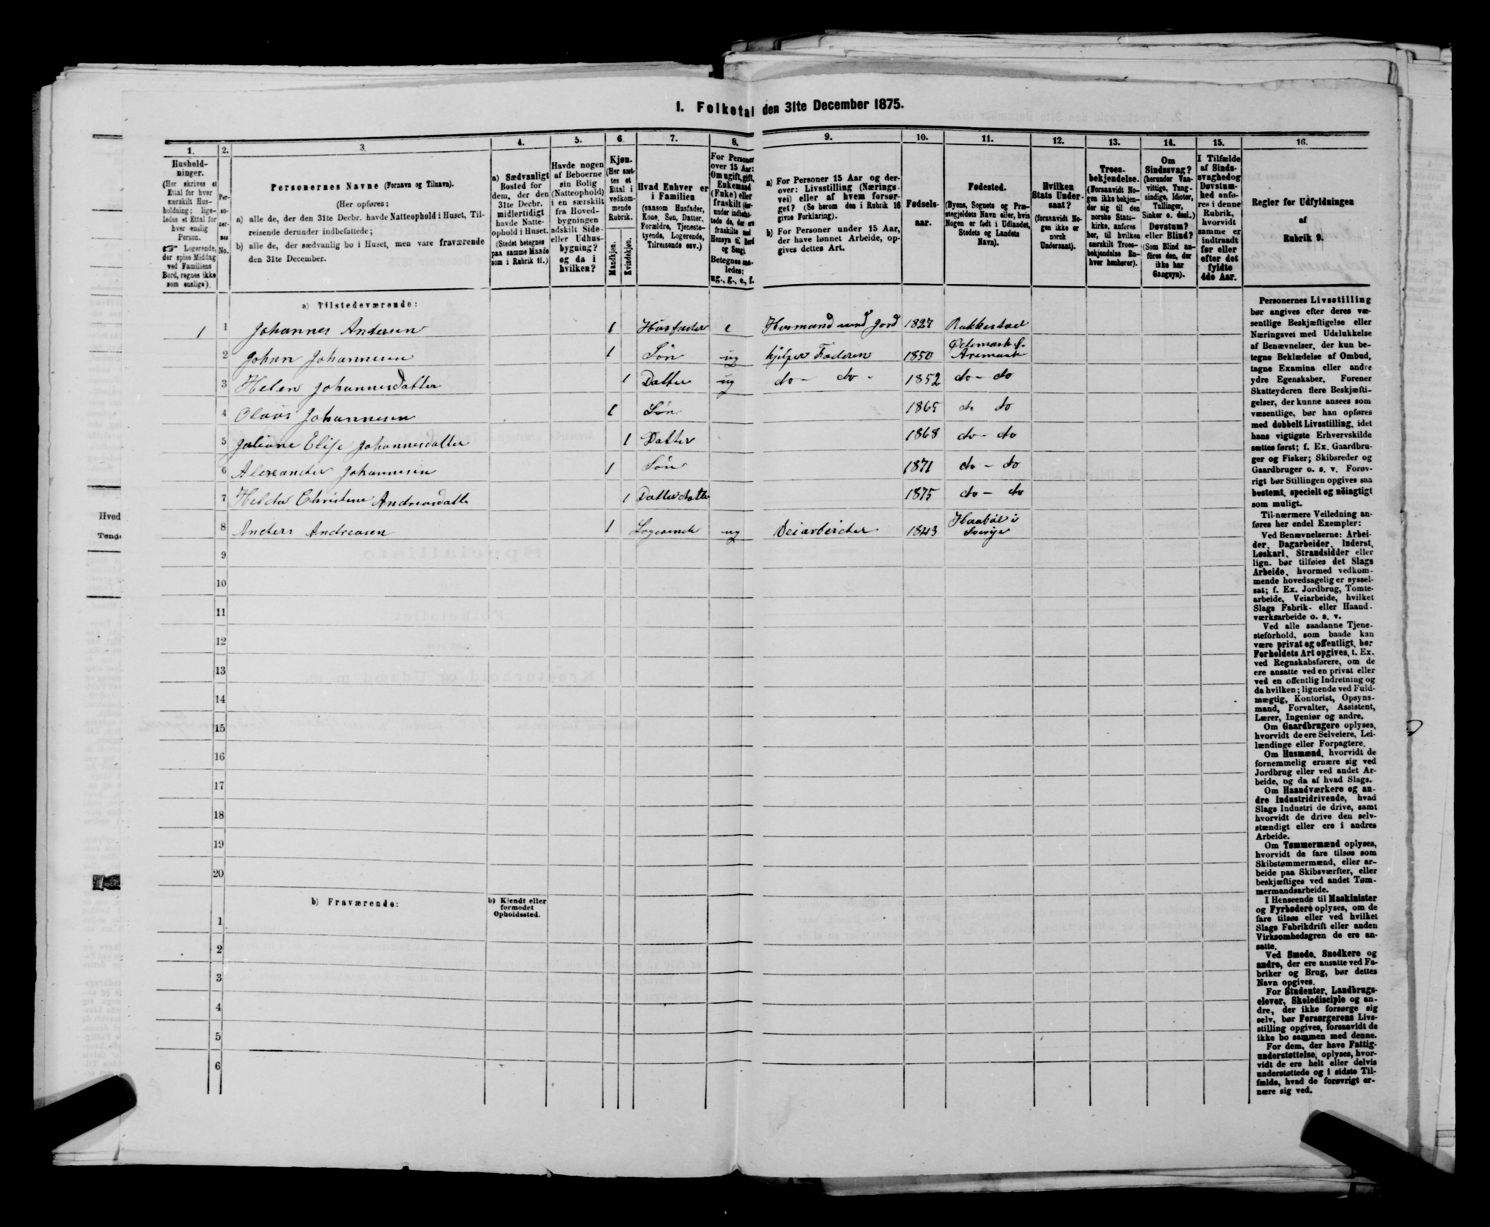 I. Folketal den 31te December 1875.
1.
Hushold-
ninger.
(Her skrives et
Ettal for hver
særskilt Hus-
holdning; lige-
ledes et Ettal for
hver enslig
Person.
☞ Logerende,
der spise Middag
ved Familiens
Bord, regnes ikke
som enslige).
2.
Per-
so-
ner-
nes
No.
3.
Personernes Navne (Fornavn og Tilnavn).
(Her opføres:
a) alle de, der den 31te Decbr. havde Natteophold i Huset, Til-
reisende derunder indbefattede;
b) alle de, der sædvanlig bo i Huset, men vare fraværende
den 31te December.
4.
a) Sædvanligt
Bosted for
dem, der den
31te Decbr.
midlertidigt
havde Natte-
ophold i Huset.
(Stedet betegnes
paa samme Maade
som i Rubrik 11.)
5.
Havde nogen
af Beboerne
sin Bolig
(Natteophold)
i en særskilt
fra Hoved-
bygningen
adskilt Side-
eller Udhus-
bygning?
og da i
hvilken?
6.
Kjøn.
(Her sæt-
tes et
Ettal i
vedkom-
mende
Rubrik.
Mandkjøn.
Kvindekjøn.
7.
Hvad Enhver er
i Familien
(saasom Husfader,
Kone, Søn, Datter,
Forældre, Tjeneste-
tyende, Logerende,
Tilreisende osv.)
8.
For Personer
over 15 Aar:
Om ugift, gift,
Enkemand
(Enke) eller
fraskilt
Betegnes saa-
ledes:
ug., g., e., f.
9.
a) For Personer 15 Aar og der-
over: Livsstilling (Nærings-
vei) eller af hvem forsør-
get? (Se herom den i Rubrik 16
givne Forklaring).
b) For Personer under 15 Aar,
der have lønnet Arbeide, op-
gives dettes Art.
10.
Fødsels-
aar.
11.
Fødested.
(Byens, Sognets og Præ-
stegjeldets Navn eller, hvis
Nogen er født i Udlandet,
Stedets og Landets
Navn).
12.
Hvilken
Stats Under-
saat?
(forsaavidt No-
gen ikke er
norsk
Undersaat).
13.
Troes-
bekjendelse.
(Forsaavidt No-
gen ikke bekjen-
der sig til den
norske Stats-
kirke, anføres
her, til hvilken
særskilt Troes-
bekjendelse En-
hver henhører).
14.
Om
Sindssvag?
(herunder Van-
vittige, Tung-
sindige, Idioter,
Tullinger,
Sinker o. desl.)
Døvstum?
eller Blind?
(Som Blind an-
føres den, der
ikke har
Gangsyn).
15.
I Tilfælde
af Sinds-
svaghed og
Døvstum-
hed anfø-
res i denne
Rubrik,
hvorvidt
samme er
indtraadt
før eller
efter det
fyldte
4de Aar.
16.
Regler for Udfyldningen
af
Rubrik 9.
a) Tilstedeværende:
1 1 Johannes Andersen 1 Husfader e Husmand med Jord 1827 Rakkestad
2 Johan Johannesen 1 Søn ug hjelper Faderen 1850 Ødemark s. Aremark
3 Helen Johannesdatter 1 Datter ug do - do - 1852 do - do
4 Olaus Johannesen 1 Søn 1865 do do
5 Juliane Elise Johannesdatter 1 Datter 1868 do - do
6 Alexander Johannesen 1 Søn 1871 do - do
7 Helda Christine Andreasdatte 1 Datterdatte 1875 do - do
8 Anders Andreasen 1 Logerende ug Veiarbeider 1843 i Sverige
9
10
11
12
13
14
15
16
17
18
19
20
b) Fraværende:
b) Kjendt eller
formodet
Opholdssted.
1
2
3
4
5
6
Personernes Livsstilling
bør angives efter deres væ-
sentlige Beskjæftigelse eller
Næringsvei med Udelukkelse
af Benævnelser, der kun be-
tegne Beklædelse af Ombud,
tagne Examina eller andre
ydre Egenskaber. Forener
Skatteyderen flere Beskjæfti-
gelser, der kunne ansees som
væsentlige, bør han opføres
med dobbelt Livsstilling, idet
hans vigtigste Erhvervskilde
sættes først; f. Ex. Gaardbru-
ger og Fisker; Skibsreder og
Gaardbruger o. s. v. Forøv-
rigt bør Stillingen opgives saa
bestemt, specielt og nøiagtigt
som muligt.
Til nærmere Veiledning an-
føres her endel Exempler:
Ved Benævnelserne: Arbei-
der, Dagarbeider, Inderst,
Løskarl, Strandsidder eller
lign. bør tilføies det Slags
Arbeide, hvormed vedkom-
mende hovedsagelig er syssel-
sat; f. Ex. Jordbrug, Tomte-
arbeide, Veiarbeide, hvilket
Slags Fabrik- eller Haand-
værksarbeide o. s. v.
Ved alle saadanne Tjene-
steforhold, som baade kan
være privat og offentligt, bør
Forholdets Art opgives, t. Ex.
ved Regnskabsførere, om de
ere ansatte ved en privat eller
ved en offentlig Indretning og
da hvilken; lignende ved Fuld-
mægtig, Kontorist, Opsyns-
mand, Forvalter, Assistent,
Lærer, Ingeniør og andre.
Om Gaardbrugere oplyses,
hvorvidt de ere Selveiere, Lei-
lændinge eller Forpagtere.
Om Husmænd, hvorvidt de
fornemmelig ernære sig ved
Jordbrug eller ved andet Ar-
beide, og da af hvad Slags.
Om Haandværkere og an-
dre Industridrivende, hvad
Slags Industri de drive, samt
hvorvidt de drive den selv-
stændigt eller ere i andres
Arbeide.
Om Tømmermænd oplyses,
hvorvidt de fare tilsøs som
Skibstømmermænd, eller ar-
beide paa Skibsværfter, eller
beskjæftiges ved andet Tøm-
mermandsarbeide.
I Henseende til Maskinister
og Fyrbødere oplyses, om de
fare tilsøs eller ved hvilket
Slags Fabrikdrift eller anden
Virksomhedsgren de ere an-
satte.
Ved Smede, Snedkere og
andre, der ere ansatte ved Fa-
briker og Brug, bør dettes
Navn opgives.
For Studenter, Landbrugs-
elever, Skoledisciple og an-
dre, der ikke forsørge sig
selv, bør Forsørgerens Livs-
stilling opgives, forsaavidt de
ikke bo sammen med denne.
For dem, der have Fattig-
understøttelse, oplyses, hvor-
vidt de ere helt eller delvis
understøttede og i sidste Til-
fælde, hvad de forøvrigt er-
nære sig ved.